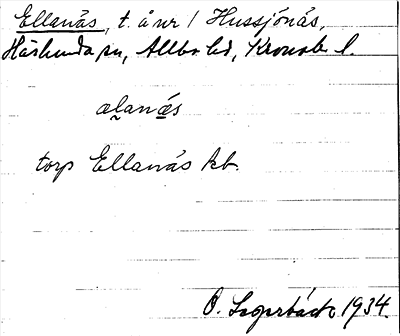 Ellanäs, t. å nr 1 Hussjönäs,
Härlunda sn, Allbo hd, Kronob. l.
alanäs
torp Ellanäs kb.
O. 1934.